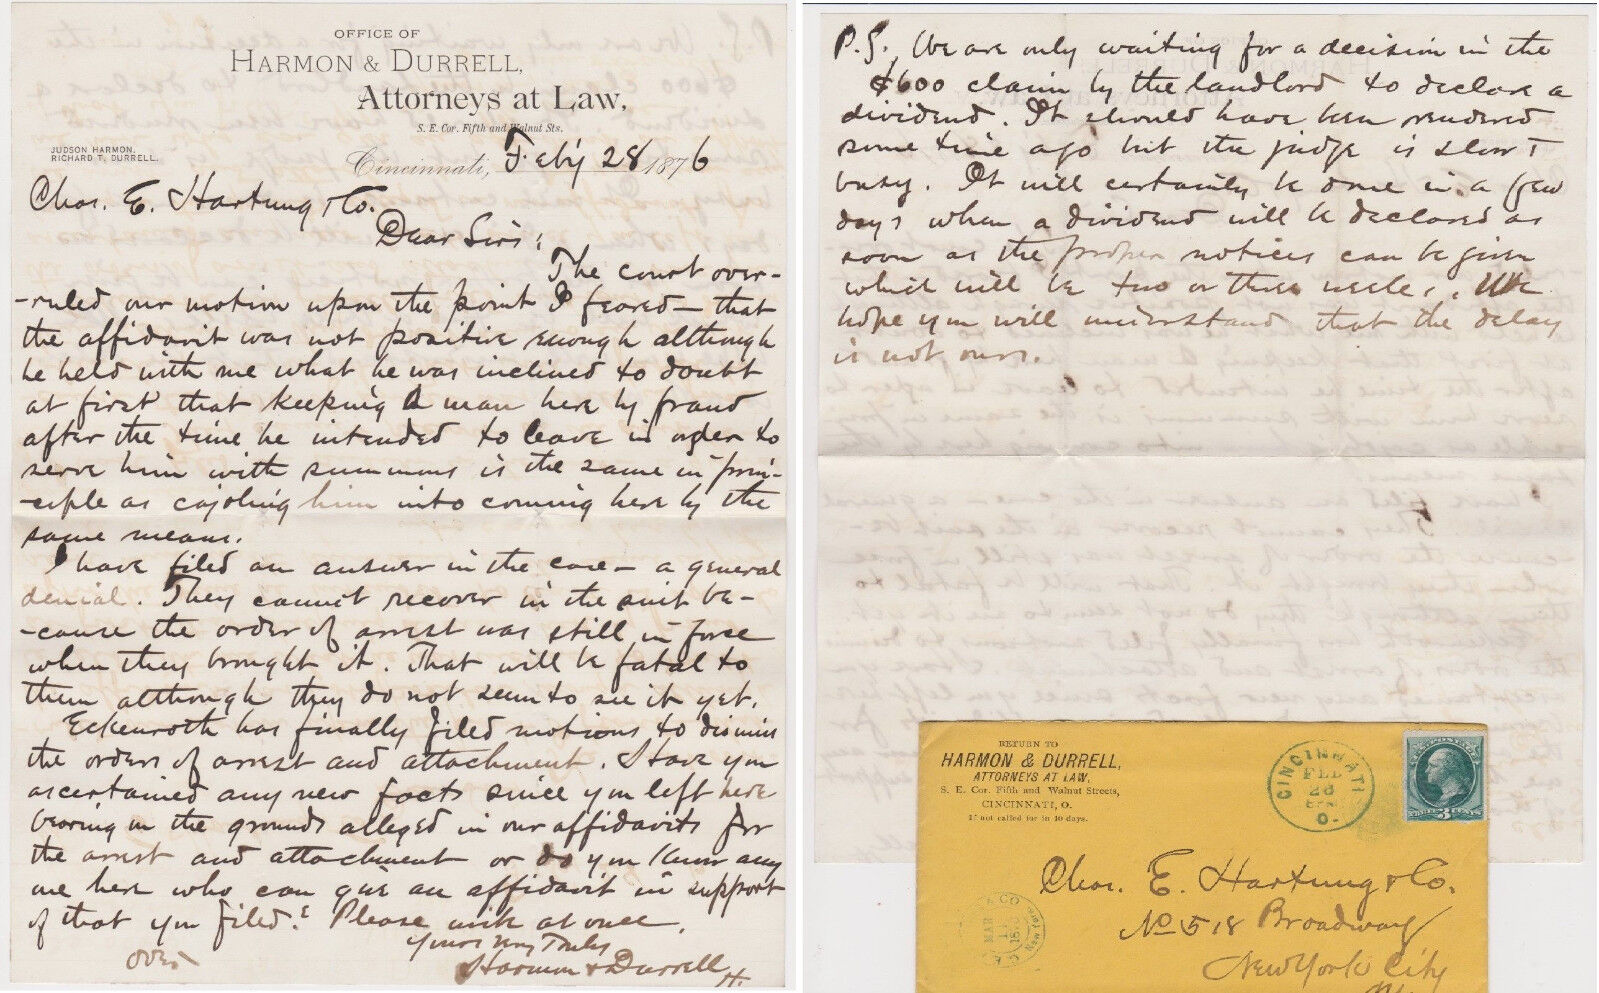 OFFICE OF
HARMON & DURRELL,
Attorneys at Law,
S. E. Cor. Fifth and Walnut Sts.
JUDSON HARMON.
RICHARD T. DURRELL.
Cincinnati, Feb'y 28 1876
Chas. E. Hartung & Co.
Dear Sirs:
The court over-
-ruled our motion upon the point I feared — that
the affidavit was not positive enough although
he held with me what he was inclined to doubt
at first that keeping a man here by fraud
after the time he intended to leave in order to
serve him with summons is the same in prin-
-ciple as cajoling him into coming here by the
same means.
I have filed an answer in the case — a general
denial. They cannot recover in the suit be-
-cause the order of arrest was still in force
when they brought it. That will be fatal to
them although they do not seem to see it yet.
Eckenroth has finally filed motions to dismiss
the orders of arrest and attachment. Have you
ascertained any new facts since you left here
bearing on the grounds alleged in our affidavits for
the arrest and attachment or do you know any
one here who can give an affidavit in support
of that you filed? Please write at once.
Yours Very Truly
Harmon & Durrell
H.
over
P.S. We are only waiting for a decision in the
$600 claim by the landlord to declare a
dividend. It should have been rendered
some time ago but the judge is slow &
busy. It will certainly be done in a few
days when a dividend will be declared as
soon as the proper notices can be given
which will be two or three weeks. We
hope you will understand that the delay
is not ours.
RETURN TO
HARMON & DURRELL,
ATTORNEYS AT LAW,
S. E. Cor. Fifth and Walnut Streets,
CINCINNATI, O.
If not called for in 10 days.
CINCINNATI
FEB
28
O.
3 CENTS
Chas. E. Hartung & Co.
No 518 Broadway
New York City
& CO
MAR
New York